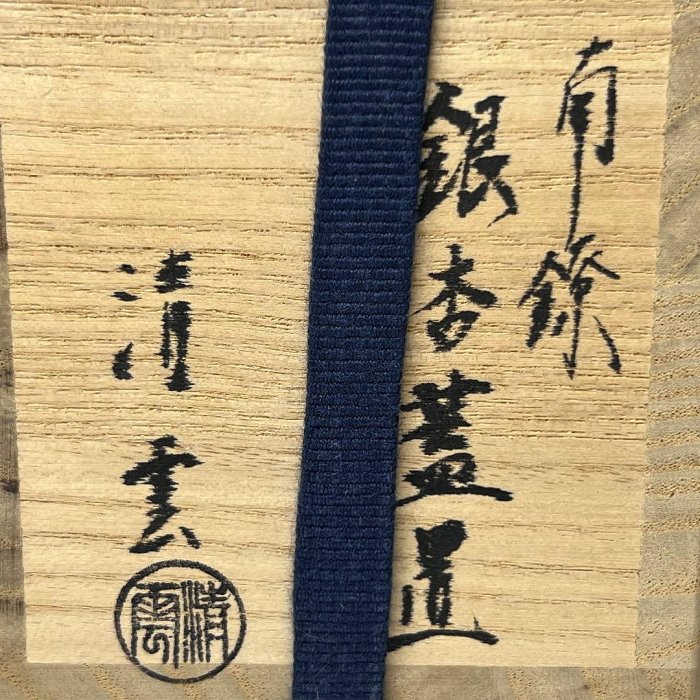 南鐐
銀杏蓋置
清雲
清雲